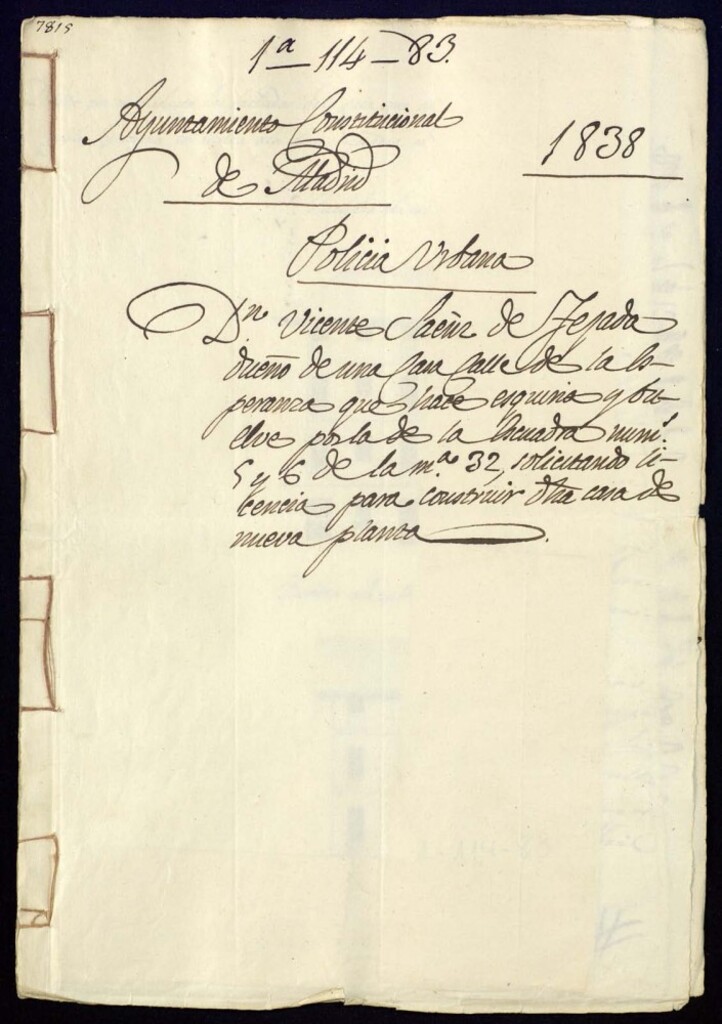 7815
1ª—114—83.
Ayuntamiento Constitucional
de Madrid
1838
Policia Urbana
Dn. Vicente Saenz de Tejada
dueño de una Casa Calle de la Es-
peranza que hace esquina y bu-
elve por la de la Escuadra num.
5 y 6 de la m.ª 32, solicitando li-
cencia para construir dha casa de
nueva planta.